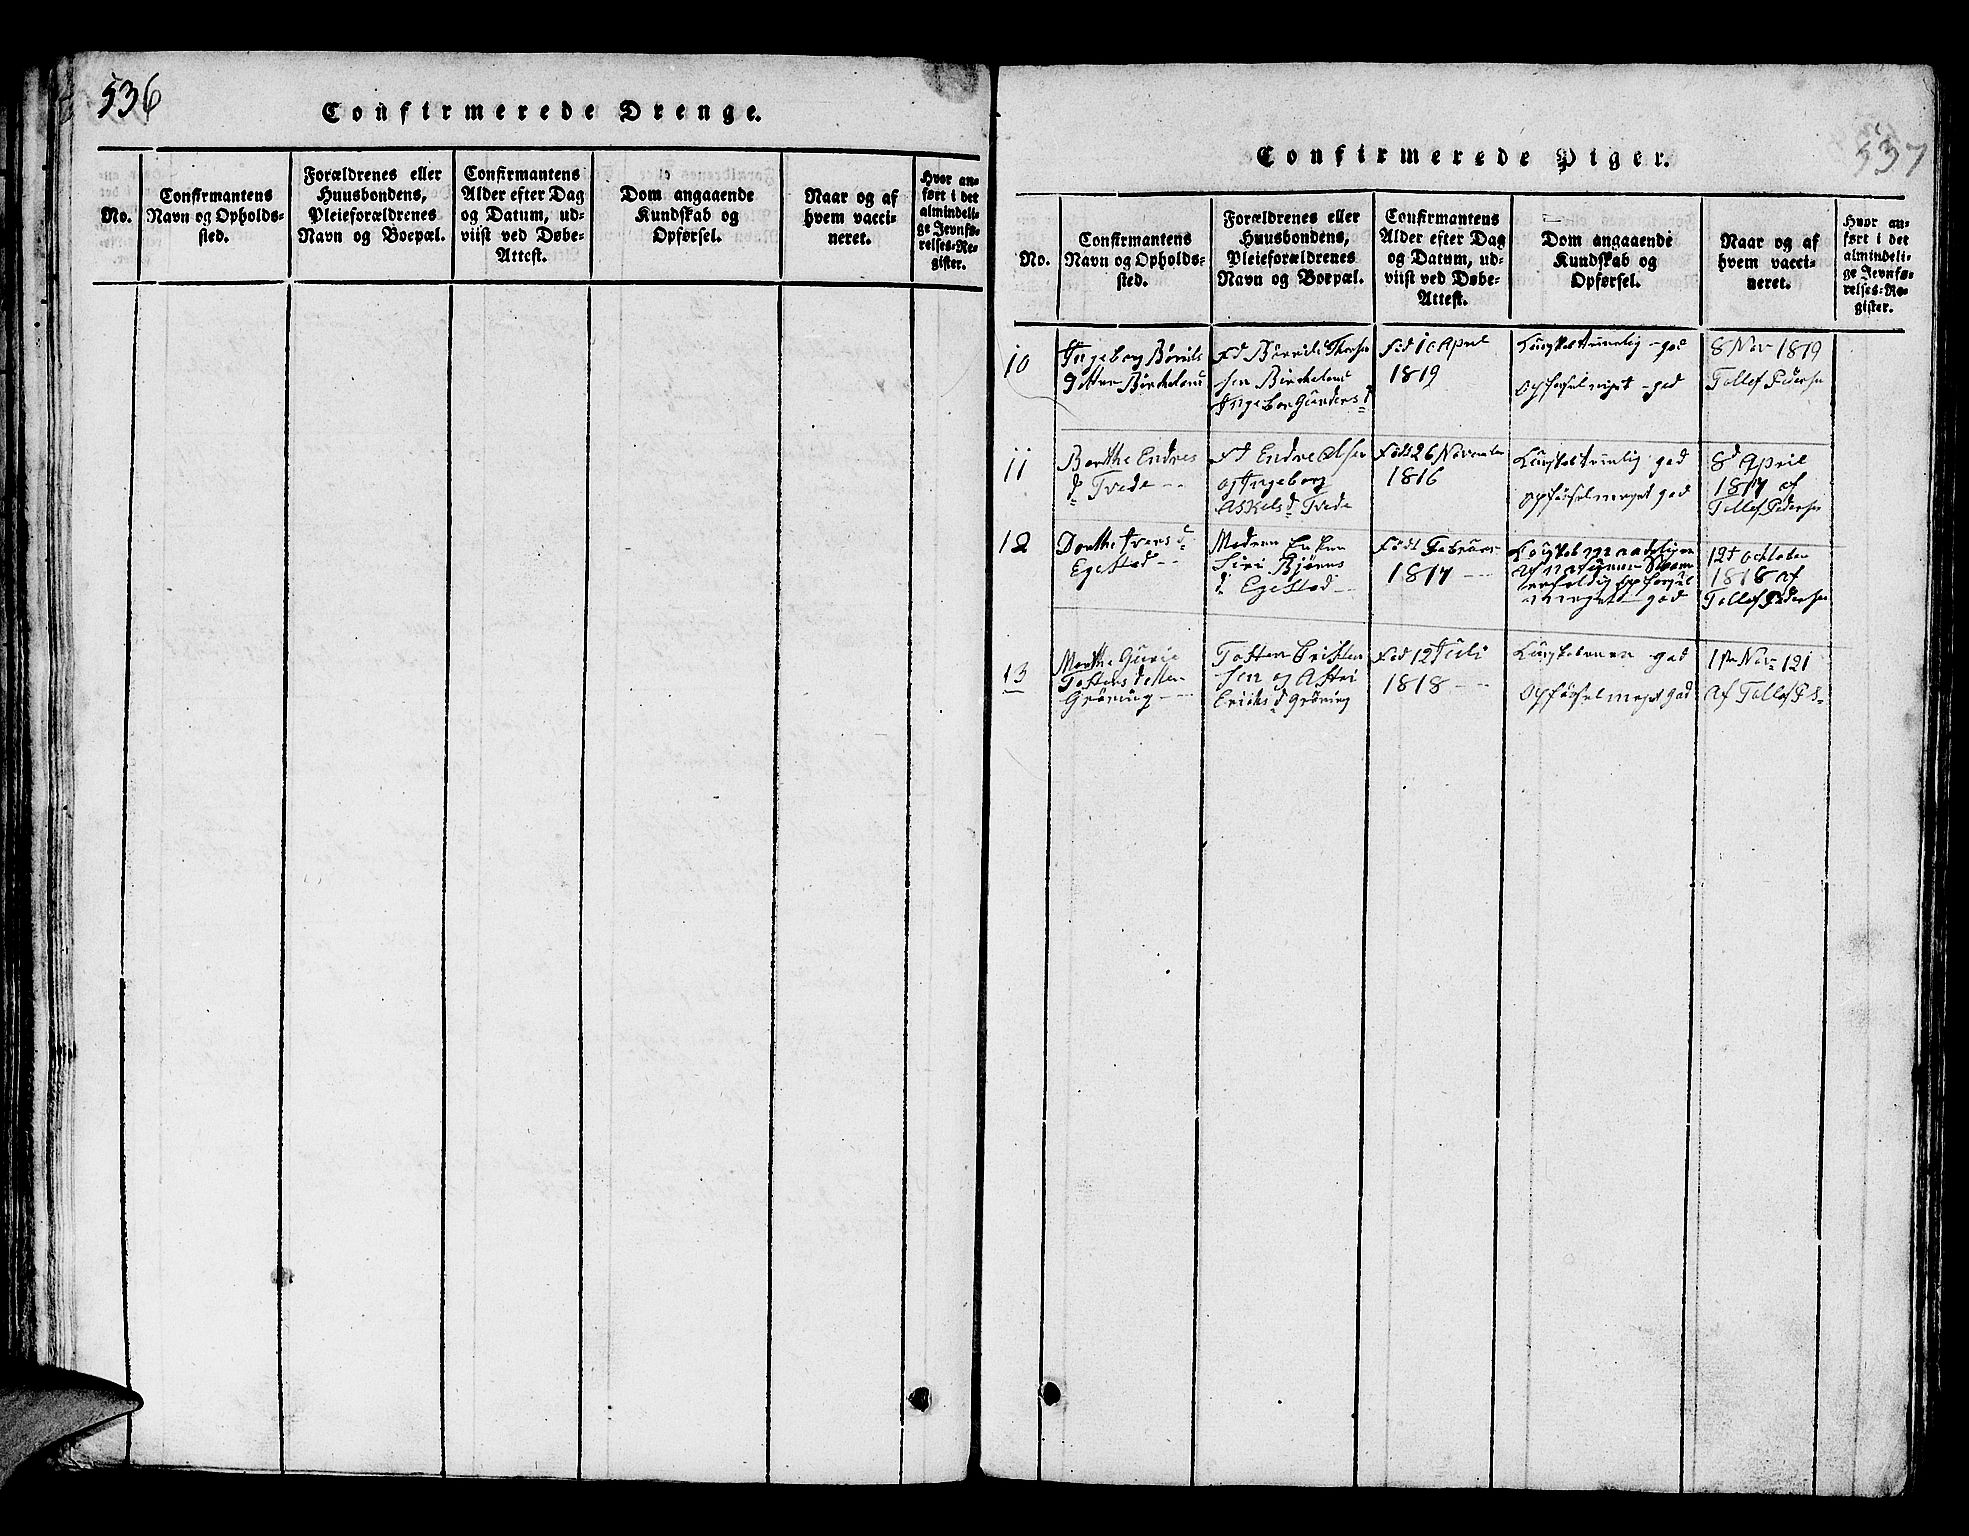 536
Confirmerede Drenge.
No.
Confirmantens
Navn og Opholds-
sted.
Forældrenes eller
Huusbondens,
Pleieforældrenes
Navn og Boepæl.
Confirmantens
Alder efter Dag
og Datum, ud-
viist ved Døbe-
Attest.
Dom angaaende
Kundskab og
Opførsel.
Naar og af
hvem vacci-
neret.
Hvor an-
ført i det
almindeli-
ge Jevnfø-
relses-Re-
gister.
537
Confirmerede Piger.
No.
Confirmantens
Navn og Opholds-
sted.
Forældrenes eller
Huusbondens,
Pleieforældrenes
Navn og Boepæl.
Confirmantens
Alder efter Dag
og Datum, ud-
viist ved Døbe-
Attest.
Dom angaaende
Kundskab og
Opførsel.
Naar og af
hvem vacci-
neret.
Hvor an-
ført i det
almindeli-
ge Jevnfø-
relses-Re-
gister.
10
Ingeborg
Datter
Ingebor Gunders d
Fød 10 April
1819
god
opførsel meget god
8 Nov 1819
Tollef Pedersen
11
Berthe Endres
d Tvede
Endre Olsen
og Ingeborg
Askels d Tvede
Født 26 November
1816
god
opførsel meget god
8d April
1817 af
Tollef Pedersen
12
Dorthe Ivers d
Egestad
Moderen Enken
Siri Bjørns
d Egestad
Født Februar
1817
opførsel
meget god
12t October
1818 af
Tollef Pedersen
13
Marthe Gurie
Tostens datter
Grøning
Tosten Cristen
sen og Astri
Erichs d Grøning
Fød 12 Juli
1818
god
opførsel meget god
af Tollef P S